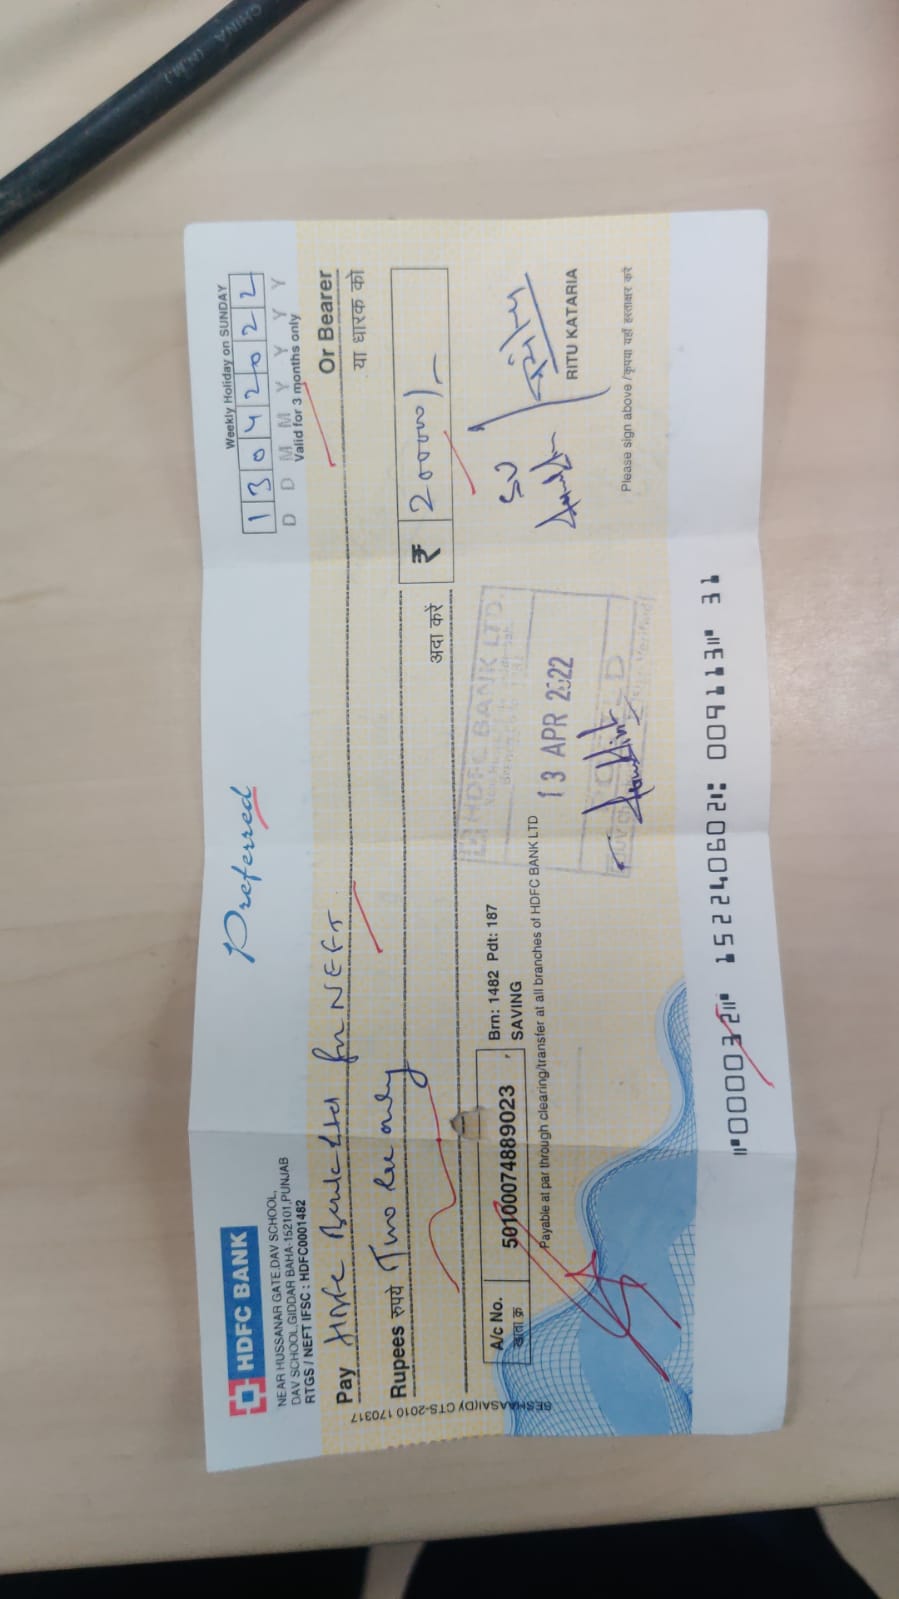 HDFC BANK
NEAR HUSSANAR GATE,DAV SCHOOL,
DAV SCHOOL,GIDDAR BAHA-152101,PUNJAB
RTGS / NEFT IFSC : HDFC0001482
Preferred
Weekly Holiday on SUNDAY
13042022
D D M M Y Y Y Y
Valid for 3 months only
Pay HDFC Bank Ltd for NEFT Or Bearer
या धारक को
Rupees रुपये Two lac only
अदा करें ₹ 200000/-
A/c No. 50100074889023
खाता क्र.
Brn: 1482 Pdt: 187
SAVING
Payable at par through clearing/transfer at all branches of HDFC BANK LTD
HDFC BANK LTD.
13 APR 2022
SV
RITU KATARIA
Please sign above /कृपया यहाँ हस्ताक्षर करे
CTS-2010 170317
⑈000032⑈ 152240602⑆ 009113⑈ 31
CHINA